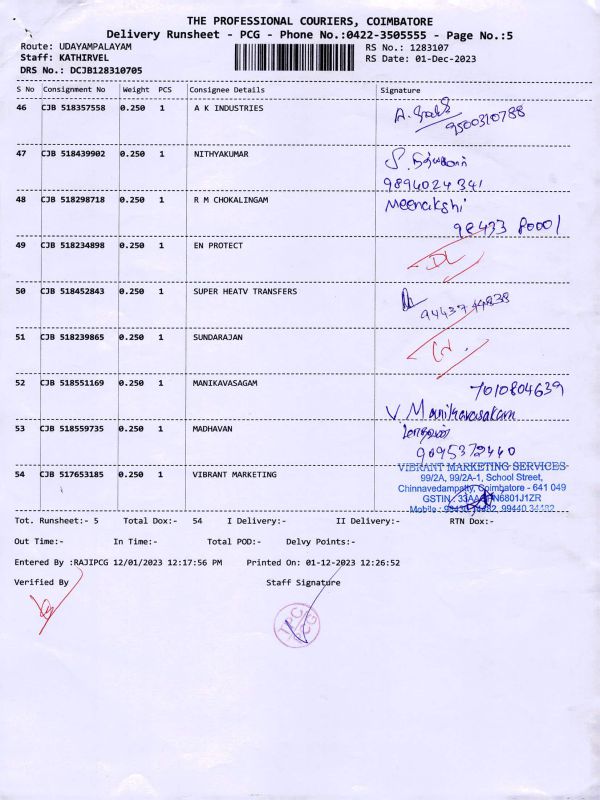 THE PROFESSIONAL COURIERS, COIMBATORE
Delivery Runsheet - PCG - Phone No.:0422-3505555 - Page No.:5
Route: UDAYAMPALAYAM RS No.: 1283107
Staff: KATHIRVEL RS Date: 01-Dec-2023
DRS No.: DCJB128310705
S No Consignment No Weight PCS Consignee Details Signature
46 CJB 518357558 0.250 1 A K INDUSTRIES
9500310788
47 CJB 518439902 0.250 1 NITHYAKUMAR
9894024341
48 CJB 518298718 0.250 1 R M CHOKALINGAM Meenakshi
98433 80001
49 CJB 518234898 0.250 1 EN PROTECT
DL
50 CJB 518452843 0.250 1 SUPER HEATV TRANSFERS
51 CJB 518239865 0.250 1 SUNDARAJAN
52 CJB 518551169 0.250 1 MANIKAVASAGAM 7010804639
V. Manikavasakam
53 CJB 518559735 0.250 1 MADHAVAN
9095372440
54 CJB 517653185 0.250 1 VIBRANT MARKETING VIBRANT MARKETING SERVICES
99/2A, 99/2A-1, School Street,
Chinnavedampatty, Coimbatore - 641 049
GSTIN : N6801J1ZR
Mobile : 99440 34482
Tot. Runsheet:- 5 Total Dox:- 54 I Delivery:- II Delivery:- RTN Dox:-
Out Time:- In Time:- Total POD:- Delvy Points:-
Entered By :RAJIPCG 12/01/2023 12:17:56 PM Printed On: 01-12-2023 12:26:52
Verified By Staff Signature
TPC
PCG